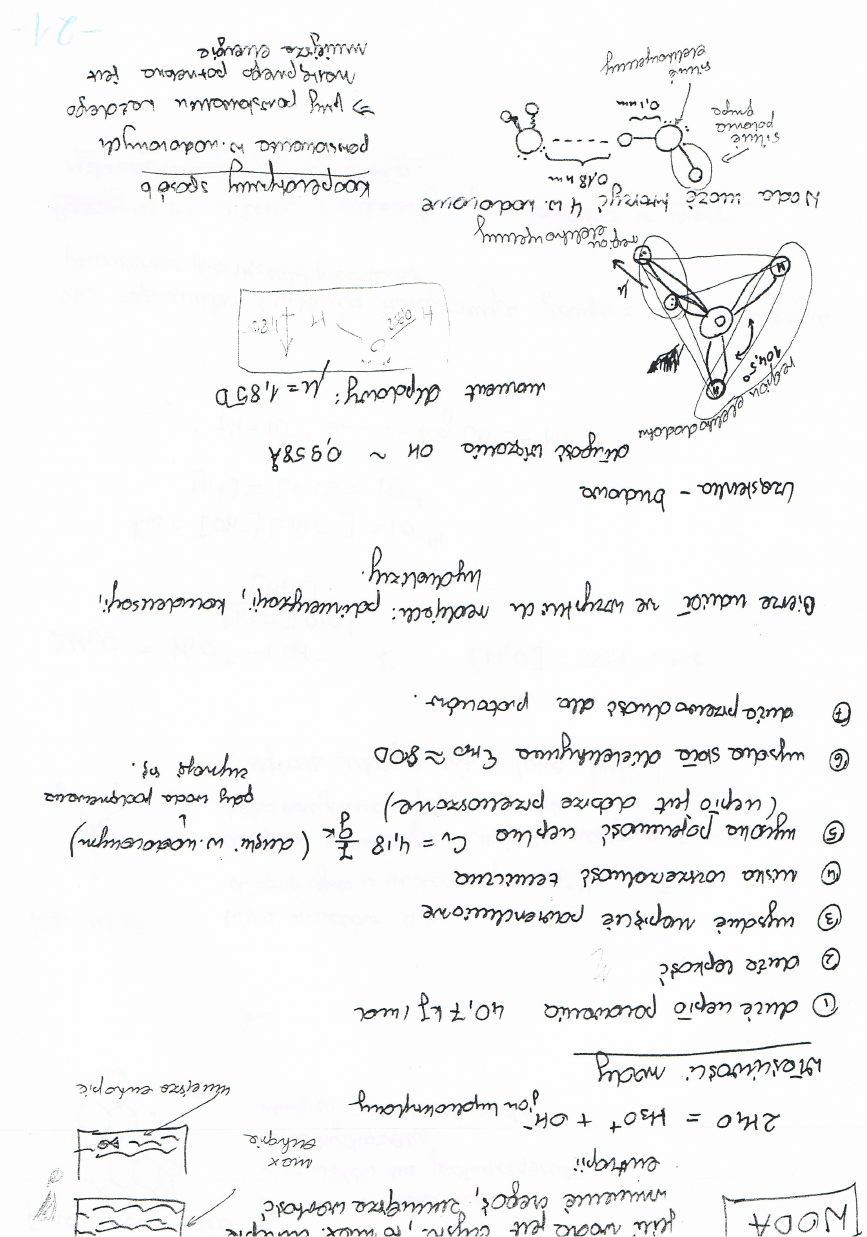 WODA
jeśli woda jest czysta, to max. entropię
wniesienie czegoś, zmniejsza wartość
entropii
max
entropia
mniejsza entropia
2H2O = H3O+ + OH-
jon hydroksylowy
Właściwości wody
① duże ciepło parowania 40,7 kJ/mol
② duża lepkość
③ wysokie napięcie powierzchniowe
④ niska rozszerzalność termiczna
⑤ wysoka pojemność cieplna Cv = 4,18 J/gK (dzięki w. wodorowym)
(ciepło jest dobrze przenoszone)
gdy woda podgrzewana
zrywają się.
⑥ wysoka stała dielektryczna εH2O ≈ 80D
⑦ duża przewodność dla protonów.
Bierze udział we wszystkich reakcjach: polimeryzacji, kondensacji,
hydrolizy.
cząsteczka - budowa
długość wiązania OH ~ 0,958Å
moment dipolowy: μ = 1,85D
O
H
H
1,85
region elektrododatni
104,5°
H
O
H
μ
region
elektroujemny
Woda może tworzyć 4 w. wodorowe
0,18 nm
0,1 nm
silnie
polarna
grupa
silnie
elektroujemny
kooperatywny sposób
powstawania w. wodorowych
⇒ przy powstawaniu każdego
następnego potrzebna jest
mniejsza energia
-21-